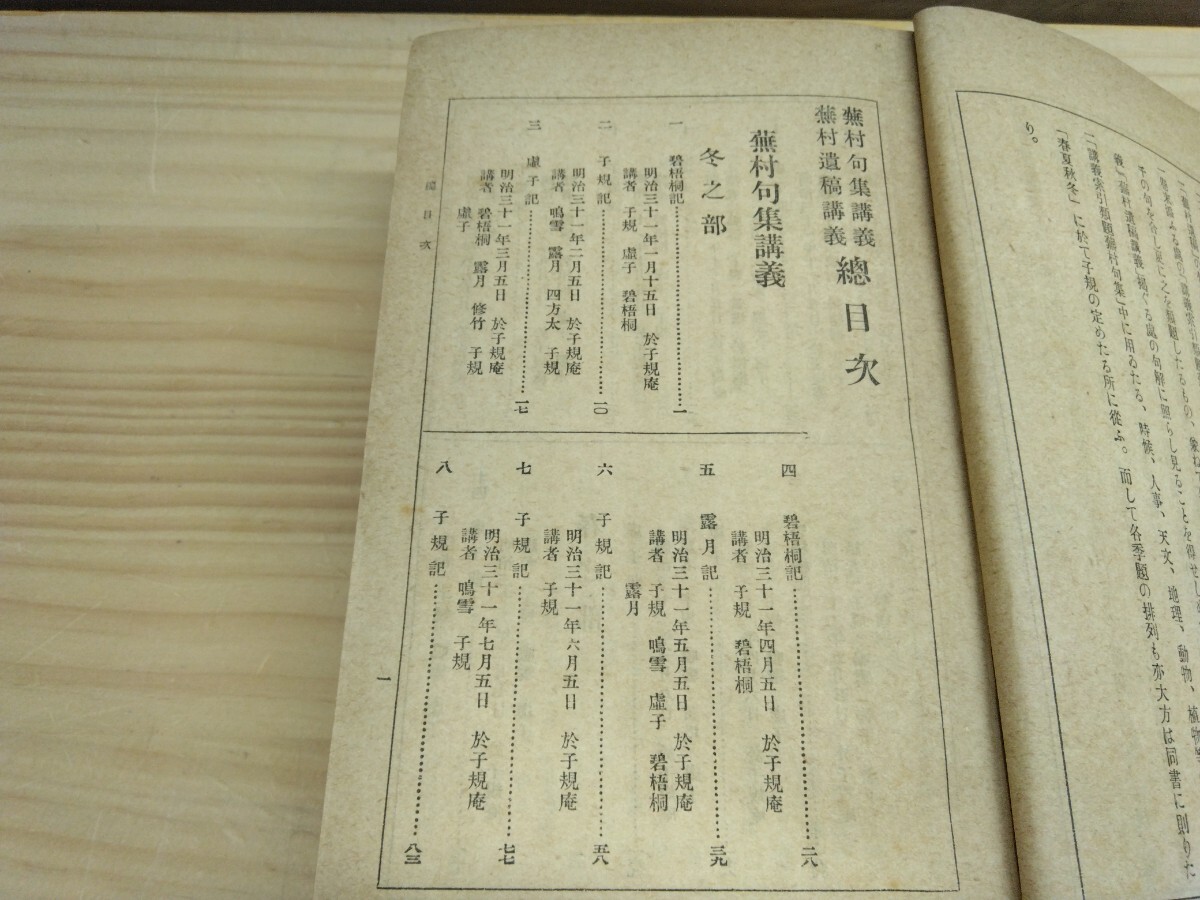 一、講義索引類題蕪村句集」中に用ゐたる、時候、人事、天文、地理、動物、植物等
「春夏秋冬」に於て子規の定めたる所に從ふ。而して各季題の排列も亦大方は同書に則りた
り。
蕪村句集講義
蕪村遺稿講義
總目次
蕪村句集講義
冬之部
一 碧梧桐記 一
明治三十一年一月十五日 於子規庵
講者 子規 虛子 碧梧桐
二 子規記 一〇
明治三十一年二月五日 於子規庵
講者 鳴雪 露月 四方太 子規
三 虛子記 一七
明治三十一年三月五日 於子規庵
講者 碧梧桐 露月 修竹 子規
虛子
四 碧梧桐記 二八
明治三十一年四月五日 於子規庵
講者 子規 碧梧桐
五 露月記 三九
明治三十一年五月五日 於子規庵
講者 子規 鳴雪 虛子 碧梧桐
露月
六 子規記 五八
明治三十一年六月五日 於子規庵
講者 子規
七 子規記 七七
明治三十一年七月五日 於子規庵
講者 鳴雪 子規
八 子規記 八三
總目次
一